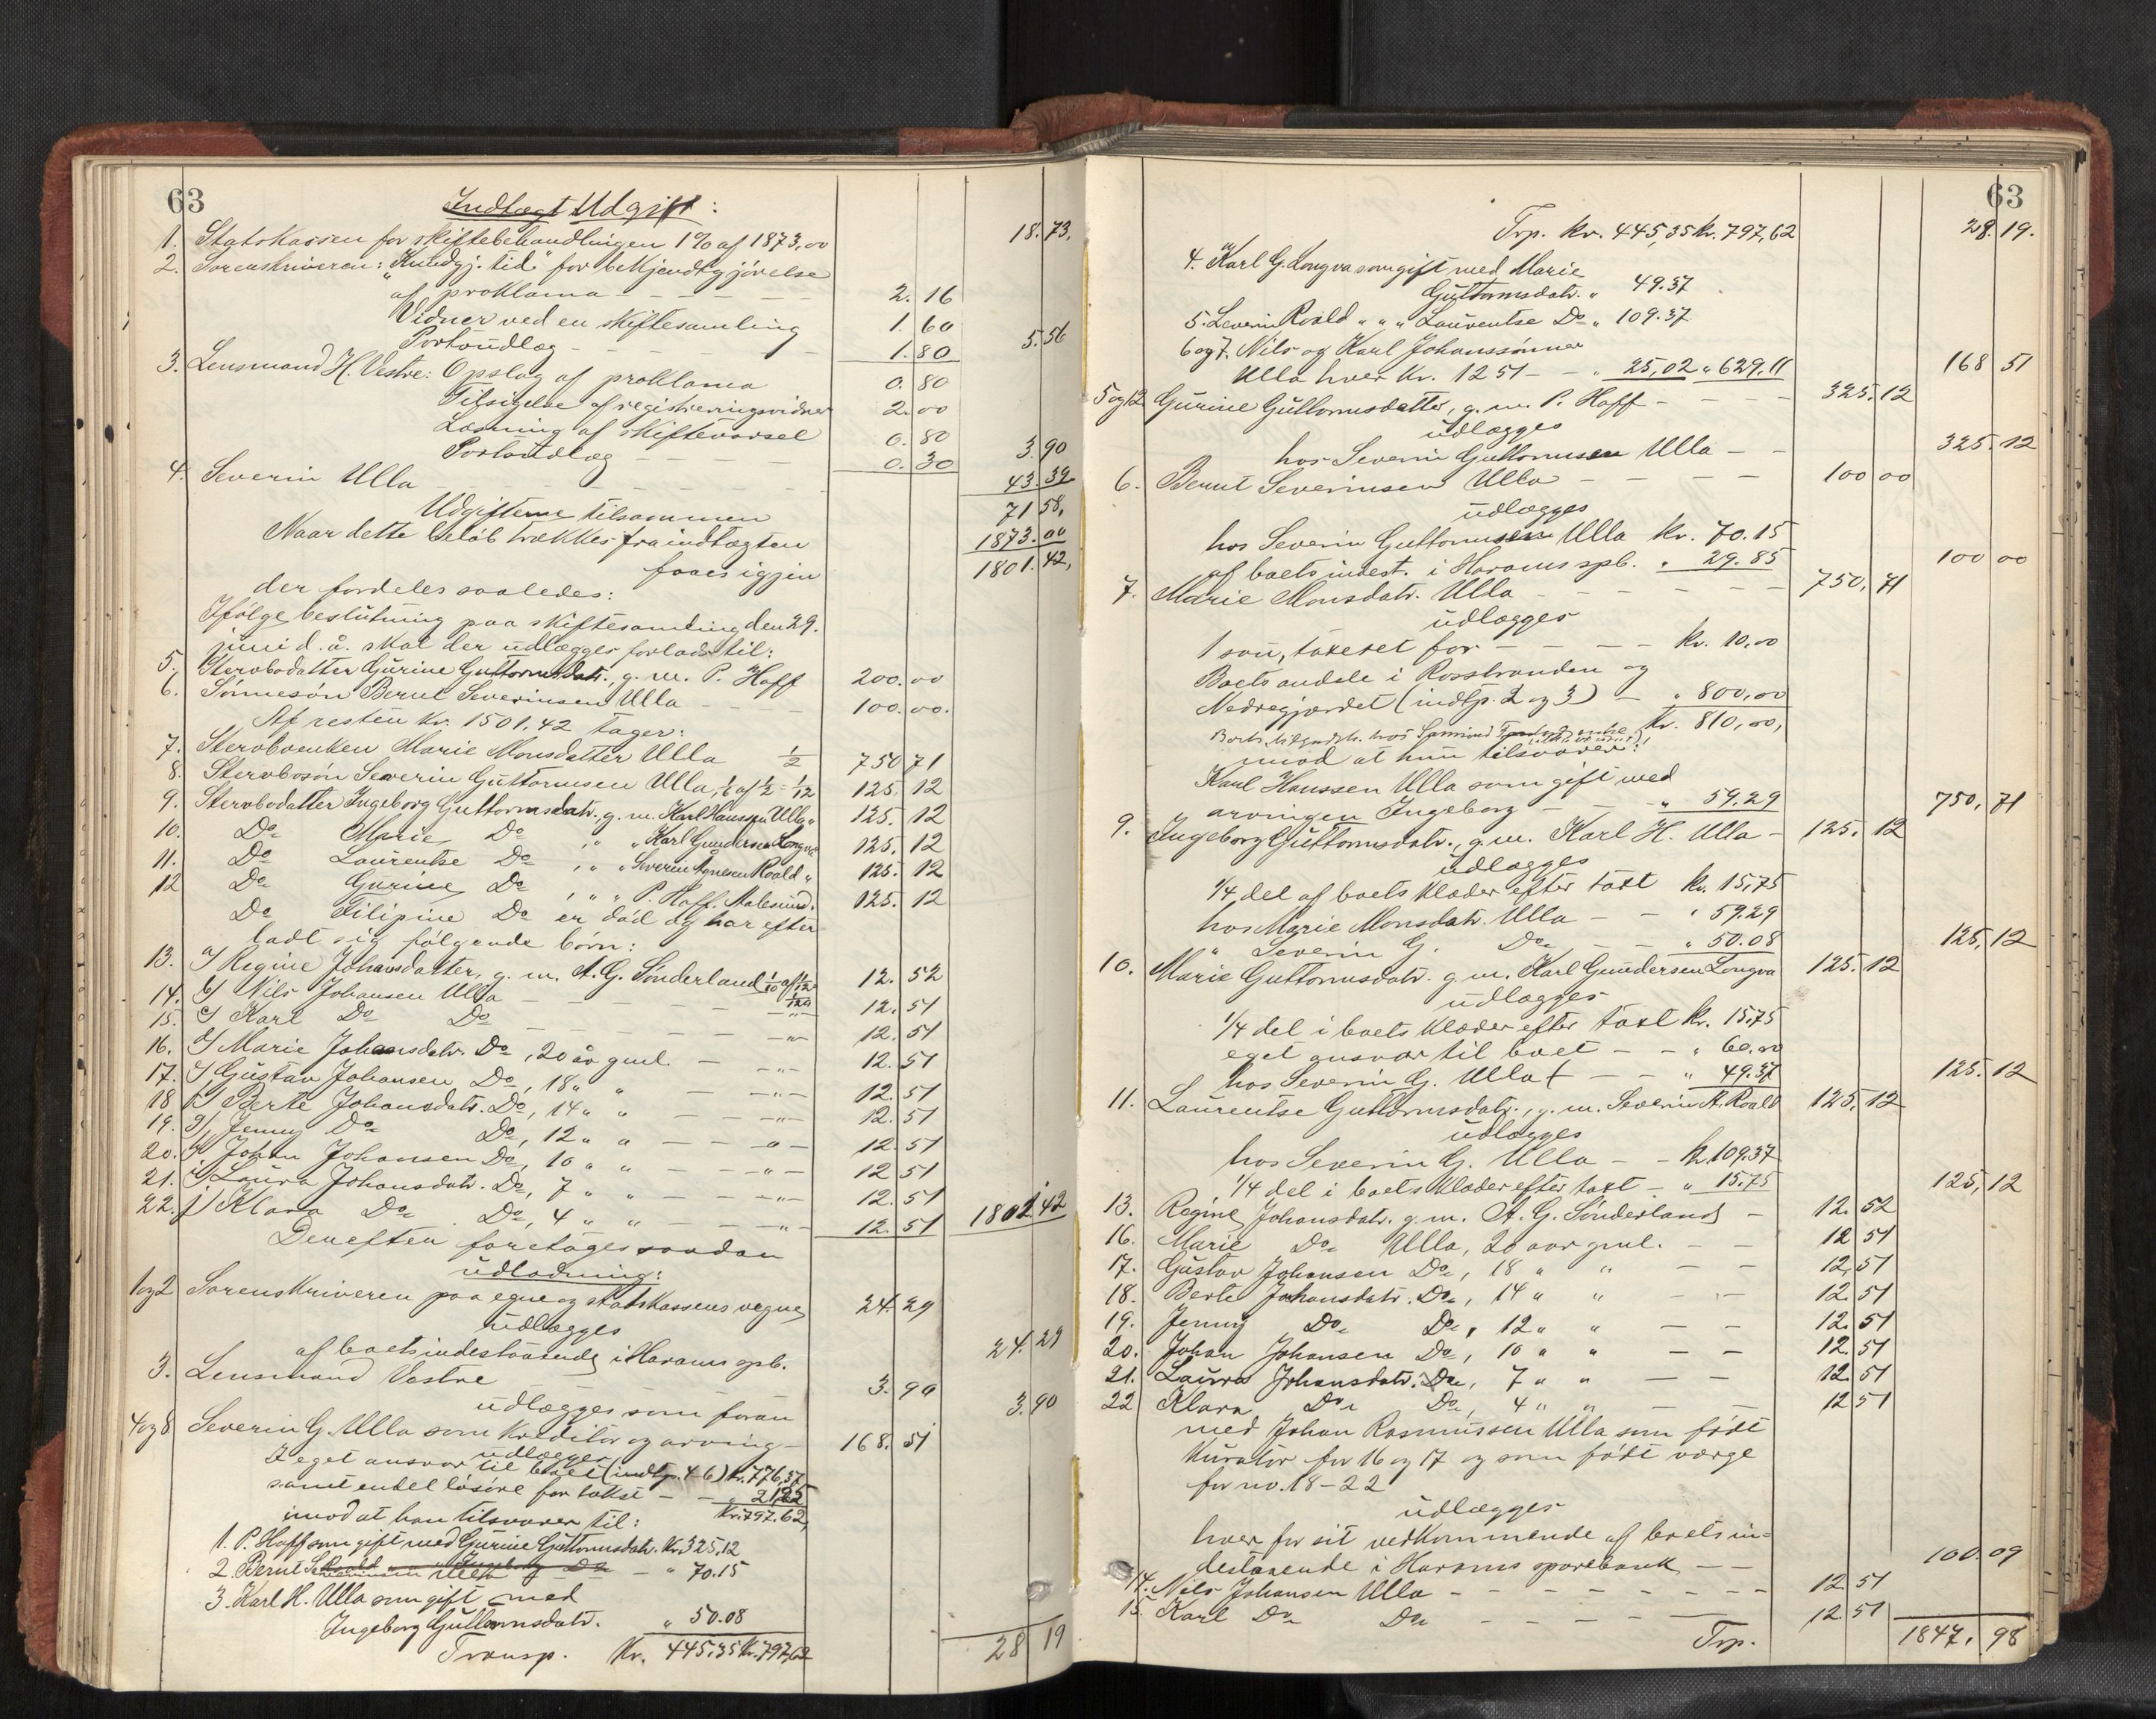 63
Indtægt Udgift:
1. Statskassen for skiftebehandlingen 1% af 1873,00 18.73,
2. Sorenskriveren: "Kundgj. tid." for bekjendtgjörelse
af proklama - - - - - 2.16
Vidner ved en skiftesamling 1.60
Portoudlæg - - - - - 1.80 5.56
3. Lensmand H. Vestre: Opslag af proklama 0.80
Tilsigelse af registreringsvidner 2.00
Læsning af skiftevarsel 0.80
Portoudlæg - - - 0.30 3.90
4. Severin Ulla - - - - - - - 43.39
Udgifterne tilsammen 71 58,
Naar dette belöb trækkes fra indtægten 1873.00
faaes igjen 1801.42,
der fordeles saaledes:
Ifölge beslutning paa skiftesamling den 29.
juni d. å. skal der udlægges forlods til:
5. Stervbodatter Gurine Guttormsdatr., g. m. P. Hoff 200.00
6. Sönnesön Bernt Severinsen Ulla - - - 100.00.
Af resten kr. 1501.42 tager:
7. Stervboenken Marie Monsdatter Ulla 1/2 750 71
8. Stervbosön Severin Guttormsen Ulla, 1/6 af 1/2 = 1/12 125.12
9. Stervbodatter Ingeborg Guttormsdatr., g. m. Karl Hanssen Ulla " 125.12
10. Do Marie Do " " Karl Gundersen Longva 125.12
11. Do Laurentse Do " " Severin Agnesen Roald " 125.12
12 Do Gurine Do " " P. Hoff. Aalesund. 125.12
Do Filipine Do er död og har efter
ladt sig fölgende börn:
13. a/ Regine Johansdatter, g. m. A. G. Sönderland 1/10 af 1/12 = 1/120 12.52
14. b/ Nils Johansen Ulla - - - - - " - 12.51
15. c/ Karl Do Do - - - - - " - 12.51
16. d/ Marie Johansdatr. Do, 20 år gml. - - " - 12.51
17. e/ Gustav Johansen Do, 18 " " - - " - 12.51
18 f/ Berte Johansdatr. Do, 14 " " - - " - 12.51
19. g/ Jenny Do Do, 12 " " - - " - 12.51
20. h/ Johan Johansen Do, 10 " " - - " - 12 51
21. i/ Laura Johansdatr. Do, 7 " " - - " - 12.51
22. j/ Klara Do Do, 4 " " - - " - 12.51 1801 42
Derefter foretages saadan
udlodning:
1 og 2 Sorenskriveren paa egne og statskassens vegne 24.29
udlægges
af boets indestaaende i Harams spb. 24.29
3. Lensmand Vestre - - - - - 3.90
udlægges som foran 3.90
4 og 8 Severin G. Ulla som kreditor og arving - 168.51
udlægges
I eget ansvar til boet (indtp. 4-6) kr. 776,37
samt endel lösöre for takst - - 21,25
imod at han tilsvarer til: kr. 797.62,
1. P. Hoff som gift med Gurine Guttormsdatr. kr. 325,12
2. Bernt Severinsen Ulla - " 70.15
3. Karl H. Ulla som gift med
Ingeborg Guttormsdatr. " 50.08
Transp. Kr. 445.35 Kr. 797,62 28 19
63
Trp. kr. 445,35 kr. 797,62 28.19.
4. Karl G. Longva som gift med Marie
Guttormsdatr. " 49.37
5. Severin Roald " " " Laurentse Do " 109.37
6 og 7. Nils og Karl Johanssönner
Ulla hver kr. 12 51 - - " 25,02 " 629.11 168 51
5 og 12 Gurine Guttormsdatter, g. m. P. Hoff - - - - 325.12
udlægges
hos Severin Guttormsen Ulla - - 325.12
6. Bernt Severinsen Ulla - - - - 100 00
udlægges
hos Severin Guttormsen Ulla kr. 70.15
af boets indest. i Harams spb. " 29.85 100 00
7. Marie Monsdatr. Ulla - - - - - 750,71
udlægges
1 sau, takeret for - - - - kr. 10,00
Boets andele i Rosstranden og
Nedregjerdet (indtp. 2 og 3) - " 800,00
Kr. 810,00,
mod at hun tilsvarer:
Karl Hanssen Ulla som gift med
arvingen Ingeborg - - - " 59.29 750,71
9. Ingeborg Guttormsdatr., g. m. Karl H. Ulla - 125.12
udlægges
1/4 del af boets klæder efter takst kr. 15,75
hos Marie Monsdatr. Ulla - - " 59.29
" Severin G. Do - - " 50.08 125,12
10. Marie Guttormsdatr. g. m. Karl Gundersen Longva 125.12
udlægges
1/4 del i boets klæder efter takst kr. 15.75
eget ansvar til boet - - " 60.00
hos Severin G. Ulla - - " 49.37 125.12
11. Laurentse Guttormsdatr., g. m. Severin A. Roald 125.12
udlægges
hos Severin G. Ulla - - kr. 109.37
1/4 del i boets klæder efter takst - " 15.75 125,12
13. Regine Johansdatr. g. m. A. G. Sönderland - 12.52
16. Marie Do Ulla, 20 aar gml. - - 12 51
17. Gustav Johansen Do, 18 " " - - 12,51
18. Berte Johansdatr. Do, 14 " " - - 12.51
19. Jenny Do Do, 12 " " - - 12.51
20. Johan Johansen Do, 10 " " - - 12.51
21. Laura Johansdatr. Do, 7 " " - - 12.51
22 Klara Do Do, 4 " " - - 12 51
med Johan Rasmussen Ulla som födt
kurator for 16 og 17 og som födt værge
for no. 18-22
udlægges
hver for sit vedkommende af boets in-
destaaende i Harams sparebank - - 100.09
14. Nils Johansen Ulla - - - - - - 12.51
15. Karl Do Do - - - - - 12 51
Trp. 1847.98